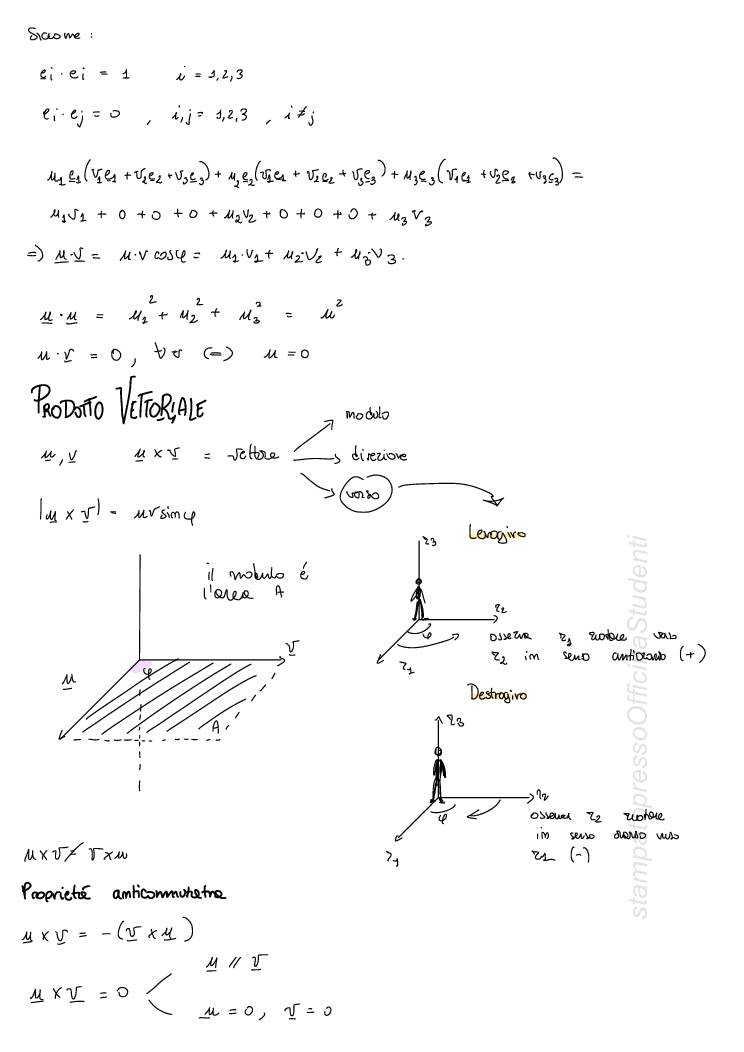 Siccome :
ei · ei = 1 i = 1,2,3
ei · ej = 0 , i,j = 1,2,3 , i ≠ j
u1e1(v1e1 + v2e2 + v3e3) + u2e2(v1e1 + v2e2 + v3e3) + u3e3(v1e1 + v2e2 + v3e3) =
u1v1 + 0 + 0 + 0 + u2v2 + 0 + 0 + 0 + u3v3
=) u·v = u·v cosφ = u1·v1 + u2·v2 + u3·v3.
u · u = u1² + u2² + u3² = u²
u · v = 0, ∀v (=) u = 0
PRODOTTO VETTORIALE
modulo
u, v u × v = vettore direzione
verso
|u × v| = uv sinφ
Levogiro
il modulo é
l'area A
r3
r2
φ
r1
osserva r1 ruotare verso
r2 in senso antiorario (+)
v
φ
u
A
Destrogiro
r3
r2
φ
r1
osserva r2 ruotare
in senso orario verso
r1 (-)
u × v ≠ v × u
Proprietá anticommutativa
u × v = -(v × u)
u // v
u × v = 0
u = 0, v = 0
stampatopressoOfficinaStudenti